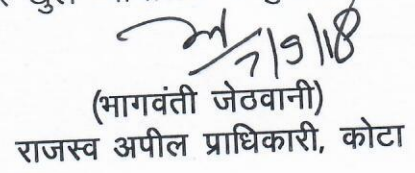 7/9/18
(भागवंती जेठवानी)
राजस्व अपील प्राधिकारी, कोटा